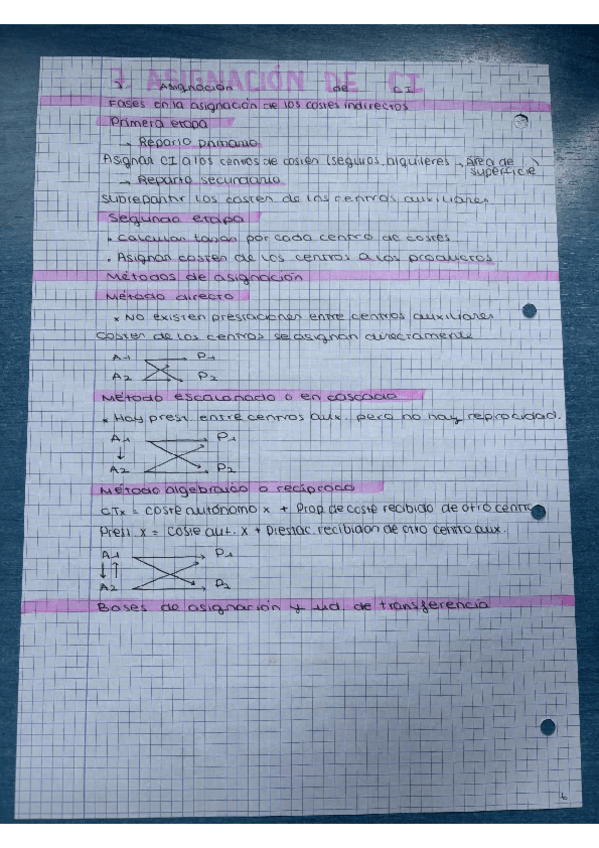 7. ASIGNACIÓN DE CI
7. Asignación de CI
Fases en la asignación de los costes indirectos
Primera etapa
→ Reparto primario
Asignan CI a los centros de costes (seguros, alquileres → área de superficie)
→ Reparto secundario
Subrepartir los costes de los centros auxiliares
Segunda etapa
• Calculan tasas por cada centro de costes
• Asignan costes de los centros a los productos
Métodos de asignación
Método directo
* No existen prestaciones entre centros auxiliares
Costes de los centros se asignan directamente
A1 P1
A2 P2
Método escalonado o en cascada
* Hay prest. entre centros aux. pero no hay reprocidad.
A1 P1
↓
A2 P2
Método algebraico o recíproco
CTx = coste autónomo x + Prop. de coste recibido de otro centro
Prest. x = coste aut. x + Prestac. recibidas de otro centro aux.
A1 P1
↓↑
A2 P2
Bases de asignación y ud. de transferencia